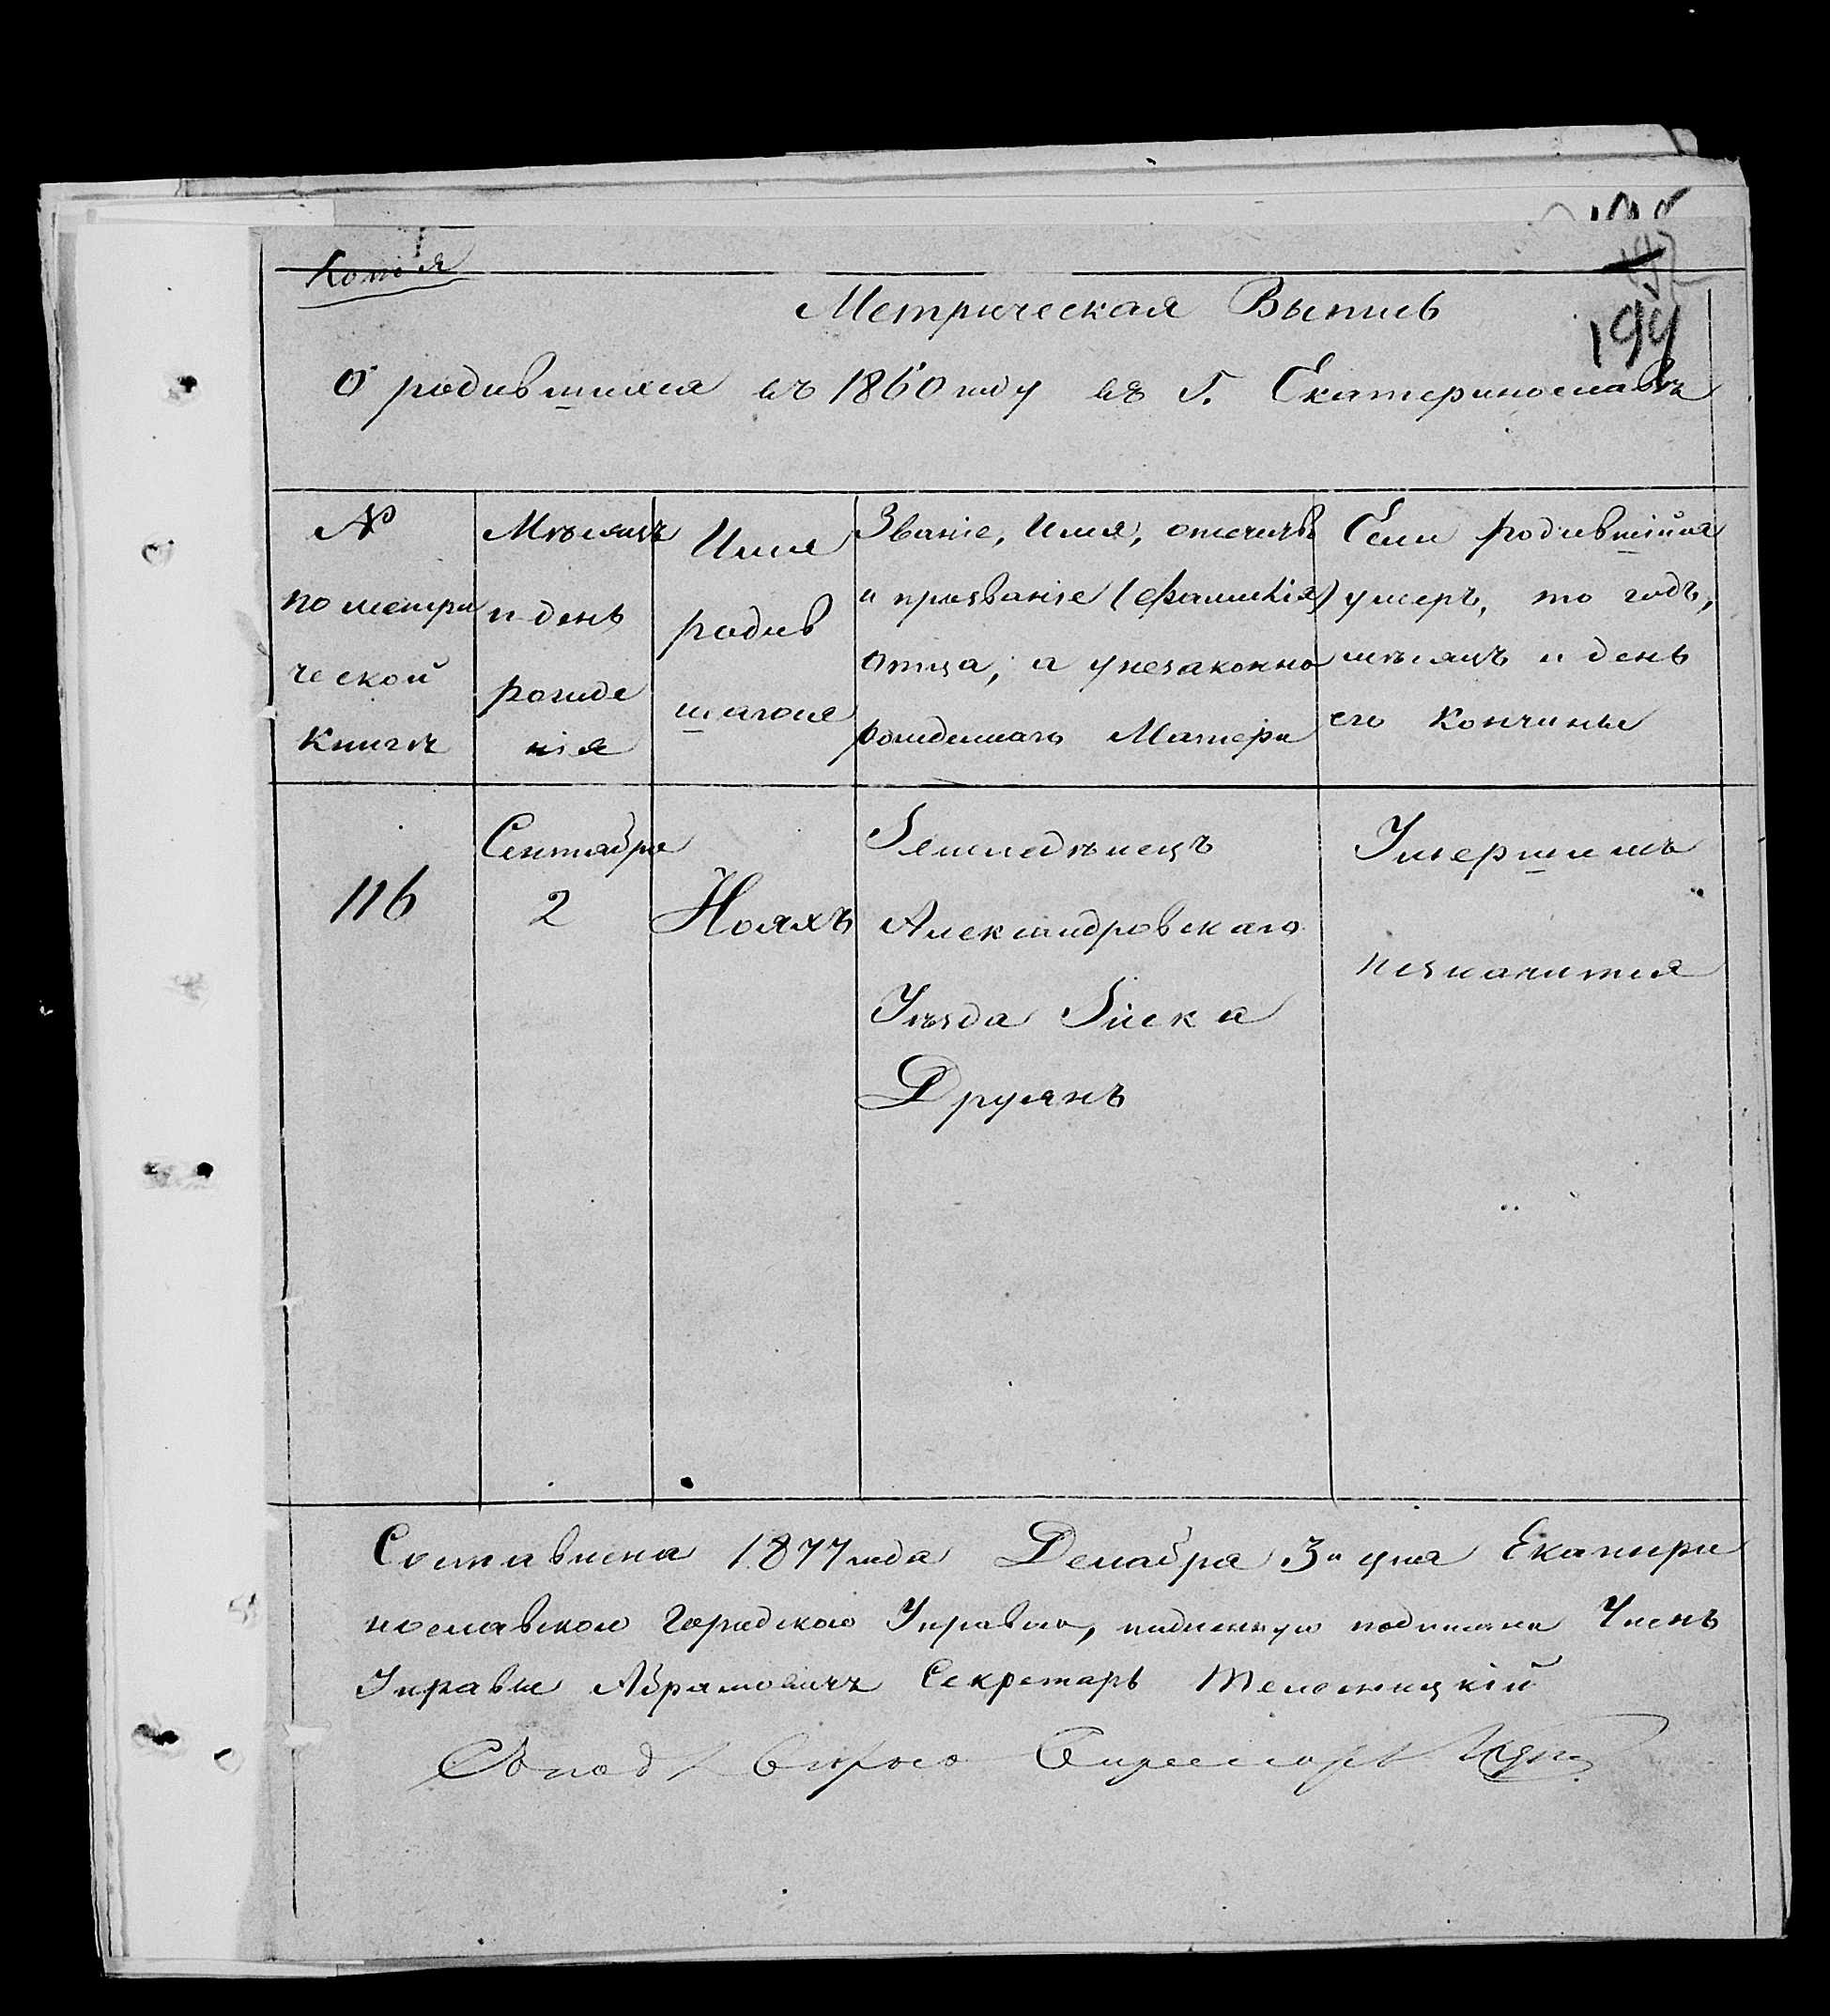 Копія
192
194
Метрическая Выпись
О родившихся въ 1860 году въ г. Екатеринославѣ
№
по метри
ческой
Книгѣ
Мѣсяцъ
и день
рожде
нія
Имя
родив
шагося
Званіе, Имя, отчество
и прозваніе (фамилія)
отца, а у незаконно
рожденнаго Матери
Если родившійся
умеръ, то годъ,
мѣсяцъ и день
его Кончины
116
Сентября
2
Нояхъ
Земледѣлецъ
Александровскаго
Уѣзда
Друянъ
Умершимъ
незначится
Составлена 1877 года Декабря 3 дня Екатери
нославскою Городскою Управою, подлинную подписали Членъ
Управы Абрамовичъ Секретарь